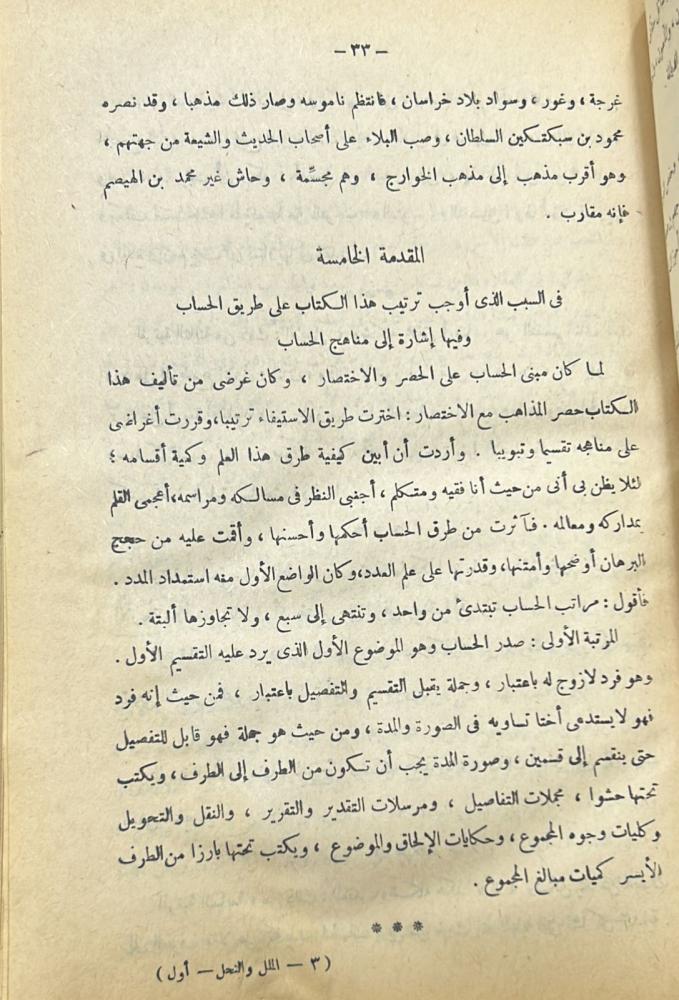 — ٣٣ —
غرجة ، وغور ، وسواد بلاد خراسان ، فانتظم ناموسه وصار ذلك مذهبا ، وقد نصره
محمود بن سبكتكين السلطان ، وصب البلاء على أصحاب الحديث والشيعة من جهتهم ،
وهو أقرب مذهب إلى مذهب الخوارج ، وهم مجسِّمة ، وحاش غير محمد بن الهيصم
فإنه مقارب .
المقدمة الخامسة
فى السبب الذى أوجب ترتيب هذا الكتاب على طريق الحساب
وفيها إشارة إلى مناهج الحساب
لما كان مبنى الحساب على الحصر والاختصار ، وكان غرضى من تأليف هذا
الكتاب حصر المذاهب مع الاختصار : اخترت طريق الاستيفاء ترتيبا، وقررت أغراضى
على مناهجه تقسيما وتبويبا . وأردت أن أبين كيفية طرق هذا العلم وكمية أقسامه ؛
لئلا يظن بى أنى من حيث أنا فقيه ومتكلم ، أجنبى النظر فى مسالكه ومراسمه، أعجمى القلم
بمداركه ومعالمه . فآثرت من طرق الحساب أحكمها وأحسنها ، وأقمت عليه من حجج
البرهان أوضحها وأمتنها، وقدرتها على علم العدد، وكان الواضع الأول منه استمداد المدد .
فأقول : مراتب الحساب تبتدئ من واحد ، وتنتهى إلى سبع ، ولا تجاوزها ألبتة .
المرتبة الأولى : صدر الحساب وهو الموضوع الأول الذى يرد عليه التقسيم الأول .
وهو فرد لازوج له باعتبار ، وجملة يقبل التقسيم والتفصيل باعتبار ، فمن حيث إنه فرد
فهو لايستدعى أختا تساويه فى الصورة والمدة ، ومن حيث هو جملة فهو قابل للتفصيل
حتى ينقسم إلى قسمين ، وصورة المدة يجب أن تكون من الطرف إلى الطرف ، ويكتب
تحتها حشوا ، مجملات التفاصيل ، ومرسلات التقدير والتقرير ، والنقل والتحويل
وكليات وجوه المجموع ، وحكايات الإلحاق والموضوع ، ويكتب تحتها بارزا من الطرف
الأيسر كميات مبالغ المجموع .
* * *
( ٣ — الملل والنحل — أول )